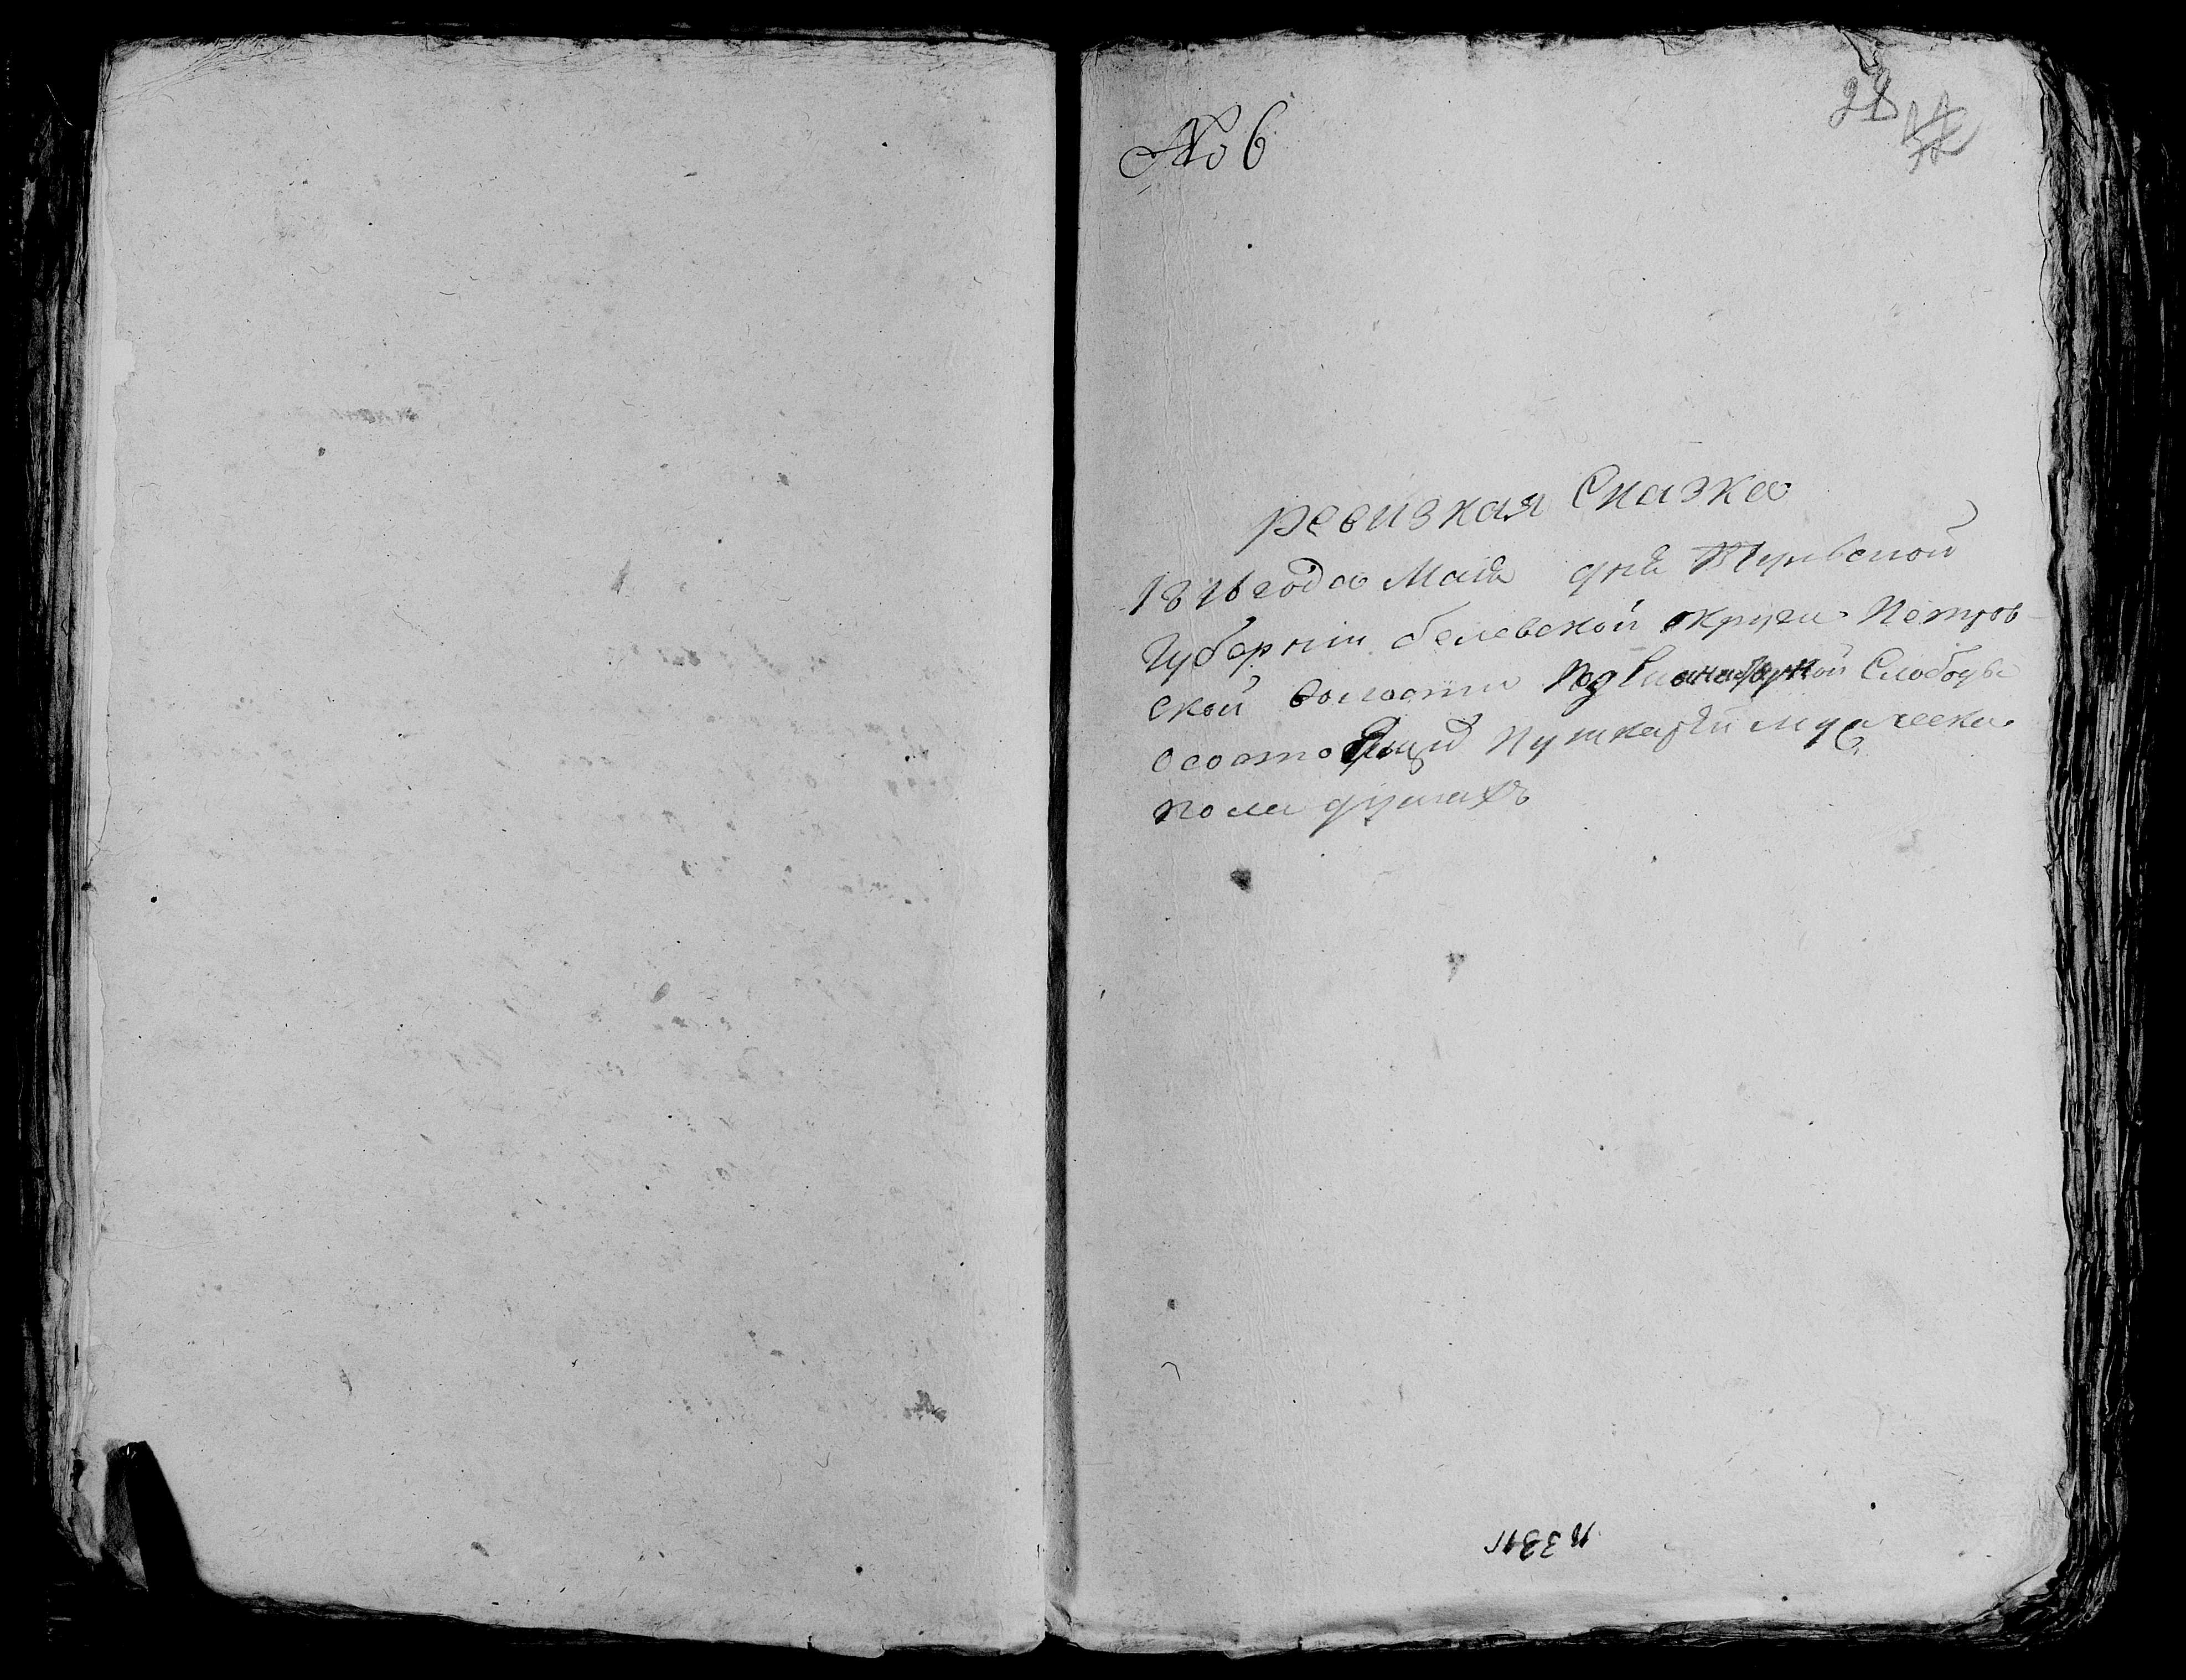 № 6
28
ревизкая Сказка
1816 года Маия дня Тульской
Губернии белевской округи Петров
ской волости Под слободы
о состоящих Пушкарей мужеска
пола душахъ